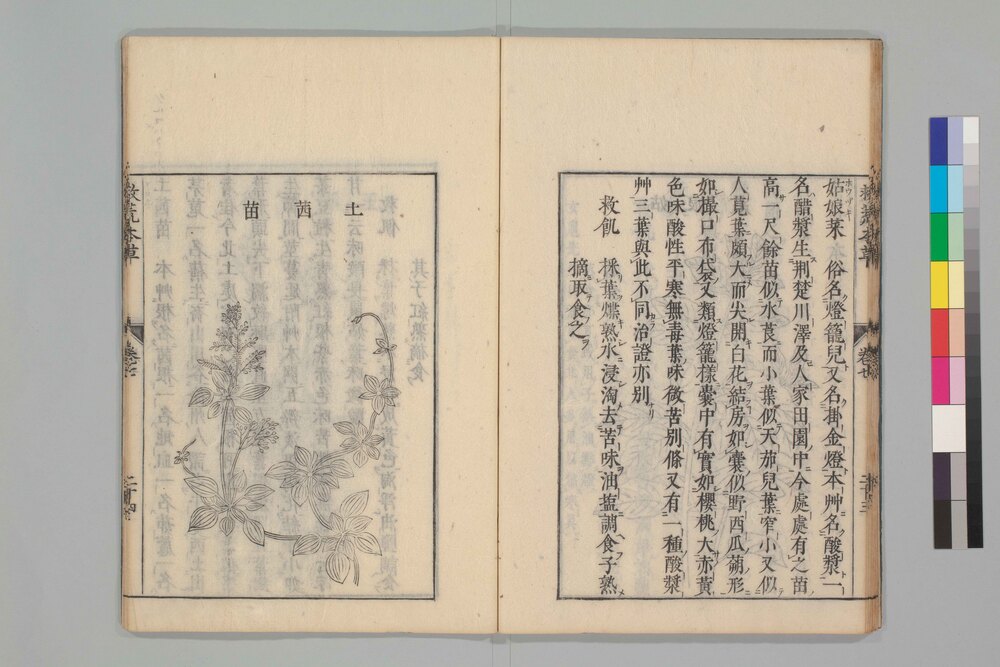 姑娘菜 俗名燈籠兒又名掛金燈本艸名酸漿一
名醋漿生荆楚川澤及人家田園中今處處有之苗
高一尺餘苗似水莨而小葉似天茄兒葉窄小又似
人莧葉頗大而尖開白花結房如囊似野西瓜蒴形
如撮口布袋又類燈籠樣囊中有實如櫻桃大赤黃
色味酸性平寒無毒葉味微苦别條又有一種酸漿
艸三葉與此不同治證亦别
救飢 採葉煠熟水浸淘去苦味油盐調食子熟
摘取食之
救荒本草
土茜苗
救荒本草
二十四